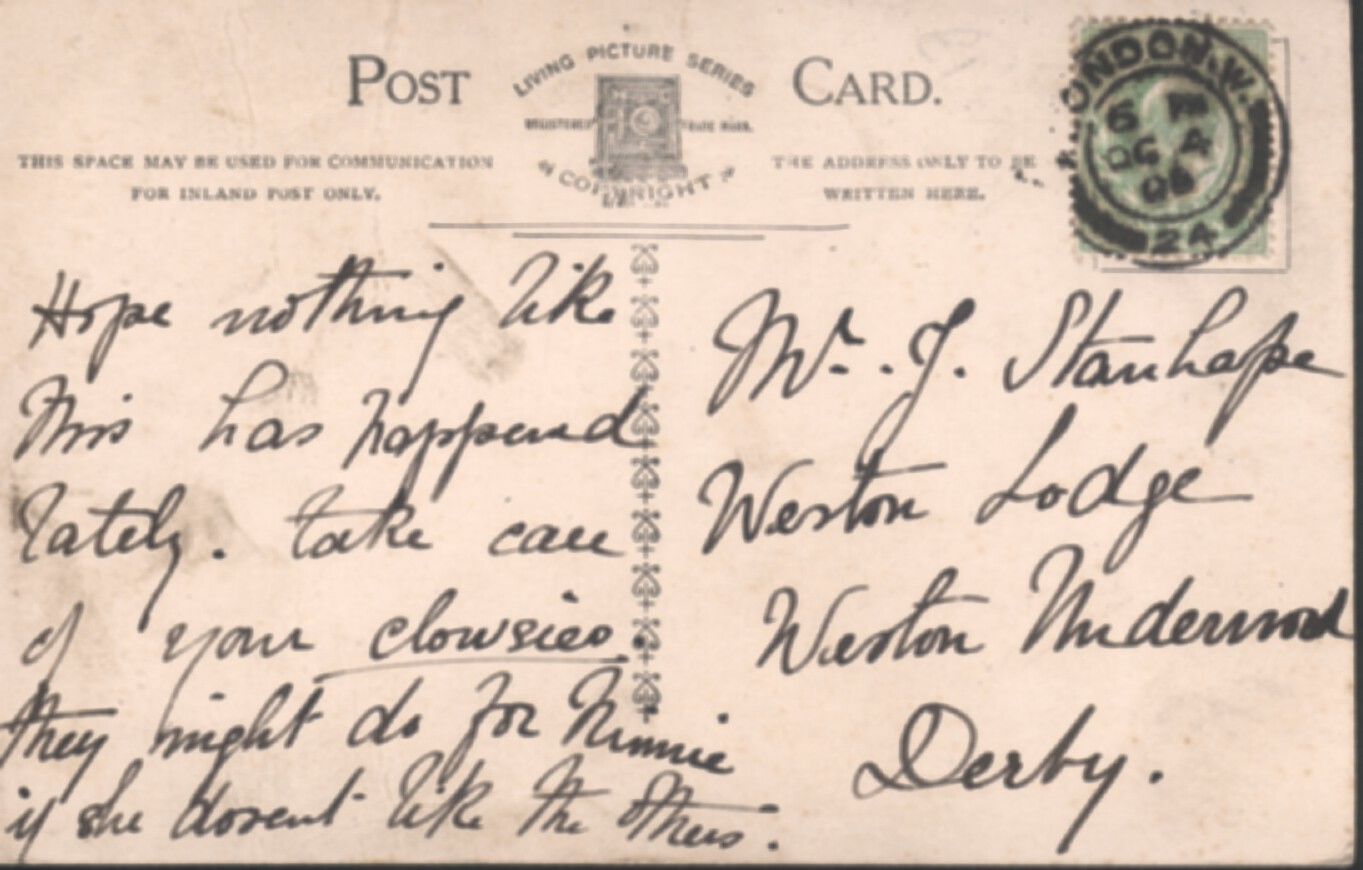 POST CARD.
LIVING PICTURE SERIES
REGISTERED TRADE MARK.
COPYRIGHT
THIS SPACE MAY BE USED FOR COMMUNICATION
FOR INLAND POST ONLY.
THE ADDRESS ONLY TO BE
WRITTEN HERE.
LONDON.W.
6 PM
OC 4
06
24
Hope nothing like
this has happend
lately. take care
of your clowsies.
they might do for Minnie
if she dosent like the others.
Mr. J. Stanhope
Weston Lodge
Weston Underwood
Derby.